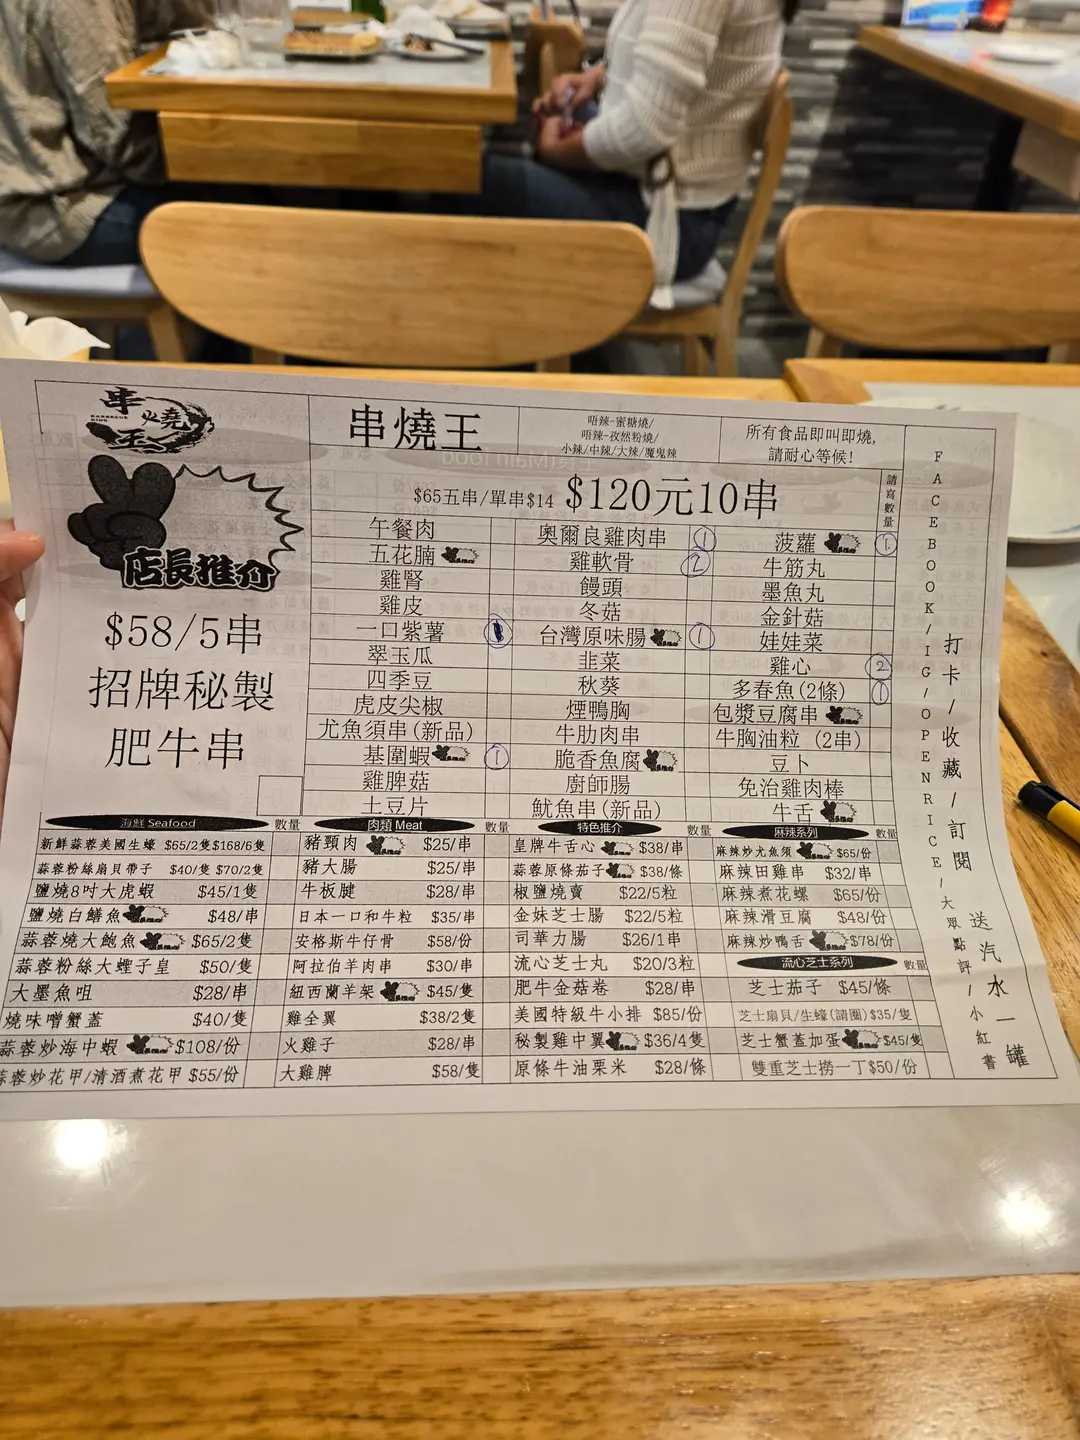 串燒王
BARBECUE KING
店長推介
$58/5串
招牌秘製
肥牛串
串燒王
唔辣-蜜糖燒/
唔辣-孜然粉燒/
小辣/中辣/大辣/魔鬼辣
所有食品即叫即燒,
請耐心等候!
$65五串/單串$14 $120元10串
請寫數量
午餐肉 奧爾良雞肉串 1 菠蘿 1
五花腩 雞軟骨 2 牛筋丸
雞腎 饅頭 墨魚丸
雞皮 冬菇 金針菇
一口紫薯 台灣原味腸 1 娃娃菜
翠玉瓜 韭菜 雞心 2
四季豆 秋葵 多春魚(2條) 1
虎皮尖椒 煙鴨胸 包漿豆腐串
尤魚須串(新品) 牛肋肉串 牛胸油粒 (2串)
基圍蝦 1 脆香魚腐 豆卜
雞脾菇 廚師腸 免治雞肉棒
土豆片 魷魚串(新品) 牛舌
海鮮 Seafood 數量
新鮮蒜蓉美國生蠔 $65/2隻$168/6隻
蒜蓉粉絲扇貝帶子 $40/隻 $70/2隻
鹽燒8吋大虎蝦 $45/1隻
鹽燒白鱔魚 $48/串
蒜蓉燒大鮑魚 $65/2隻
蒜蓉粉絲大蟶子皇 $50/隻
大墨魚咀 $28/串
燒味噌蟹蓋 $40/隻
蒜蓉炒海中蝦 $108/份
蒜蓉炒花甲/清酒煮花甲 $55/份
肉類 Meat 數量
豬頸肉 $25/串
豬大腸 $25/串
牛板腱 $28/串
日本一口和牛粒 $35/串
安格斯牛仔骨 $58/份
阿拉伯羊肉串 $30/串
紐西蘭羊架 $45/隻
雞全翼 $38/2隻
火雞子 $28/串
大雞脾 $58/隻
特色推介 數量
皇牌牛舌心 $38/串
蒜蓉原條茄子 $38/條
椒鹽燒賣 $22/5粒
金妹芝士腸 $22/5粒
司華力腸 $26/1串
流心芝士丸 $20/3粒
肥牛金菇卷 $28/串
美國特級牛小排 $85/份
秘製雞中翼 $36/4隻
原條牛油粟米 $28/條
麻辣系列 數量
麻辣炒尤魚須 $65/份
麻辣田雞串 $32/串
麻辣煮花螺 $65/份
麻辣滑豆腐 $48/份
麻辣炒鴨舌 $78/份
流心芝士系列 數量
芝士茄子 $45/條
芝士扇貝/生蠔(請圈)$35/隻
芝士蟹蓋加蛋 $45/隻
雙重芝士撈一丁$50/份
FACEBOOK/IG/OPENRICE/大眾點評/小紅書
打卡/收藏/訂閱
送汽水一罐